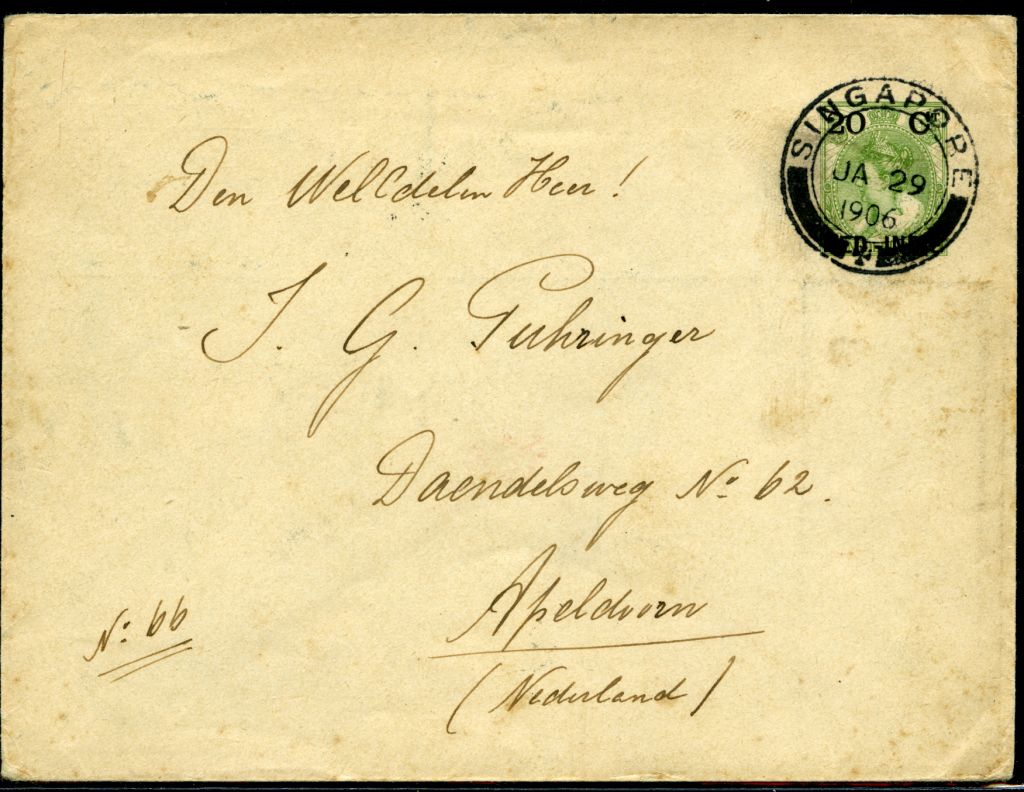 SINGAPORE
20 C
JA 29
1906
Den WelEdelen Heer!
J. G. Puhringer
Daendelsweg No. 62.
Apeldoorn
(Nederland)
No. 66